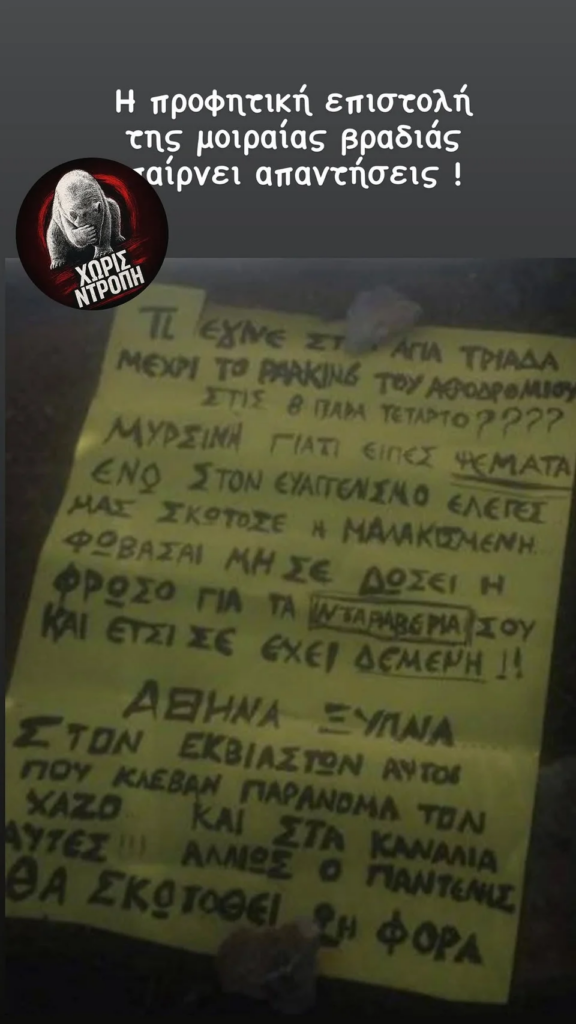 Η προφητική επιστολή
της μοιραίας βραδιάς
παίρνει απαντήσεις !
ΧΩΡΙΣ
ΝΤΡΟΠΗ
ΤΙ ΕΓΙΝΕ ΣΤ ΑΓΙΑ ΤΡΙΑΔΑ
ΜΕΧΡΙ ΤΟ PARKING ΤΟΥ ΑΕΡΟΔΡΟΜΙΟΥ
ΣΤΙΣ 8 ΠΑΡΑ ΤΕΤΑΡΤΟ????
ΜΥΡΣΙΝΗ ΓΙΑΤΙ ΕΙΠΕΣ ΨΕΜΑΤΑ
ΕΝΩ ΣΤΟΝ ΕΥΑΓΓΕΝΙΣΜΟ ΕΛΕΓΕΣ
ΜΑΣ ΣΚΩΤΟΣΕ Η ΜΑΛΑΚΙΣΜΕΝΗ
ΦΩΒΑΣΑΙ ΜΗ ΣΕ ΔΩΣΕΙ Η
ΦΡΩΣΟ ΓΙΑ ΤΑ ΙΝΤΑΡΑΒΕΡΙΑ ΣΟΥ
ΚΑΙ ΕΤΣΙ ΣΕ ΕΧΕΙ ΔΕΜΕΝΗ !!
ΑΘΗΝΑ ΞΥΠΝΑ
ΣΤΟΝ ΕΚΒΙΑΣΤΩΝ ΑΥΤΟΙ
ΠΟΥ ΚΛΕΒΑΝ ΠΑΡΑΝΟΜΑ ΤΟΝ
ΧΑΖΟ ΚΑΙ ΣΤΑ ΚΑΝΑΛΙΑ
ΑΥΤΕΣ !!! ΑΛΛΙΩΣ Ο ΠΑΝΤΕΛΗΣ
ΘΑ ΣΚΩΤΟΘΕΙ 2Η ΦΟΡΑ